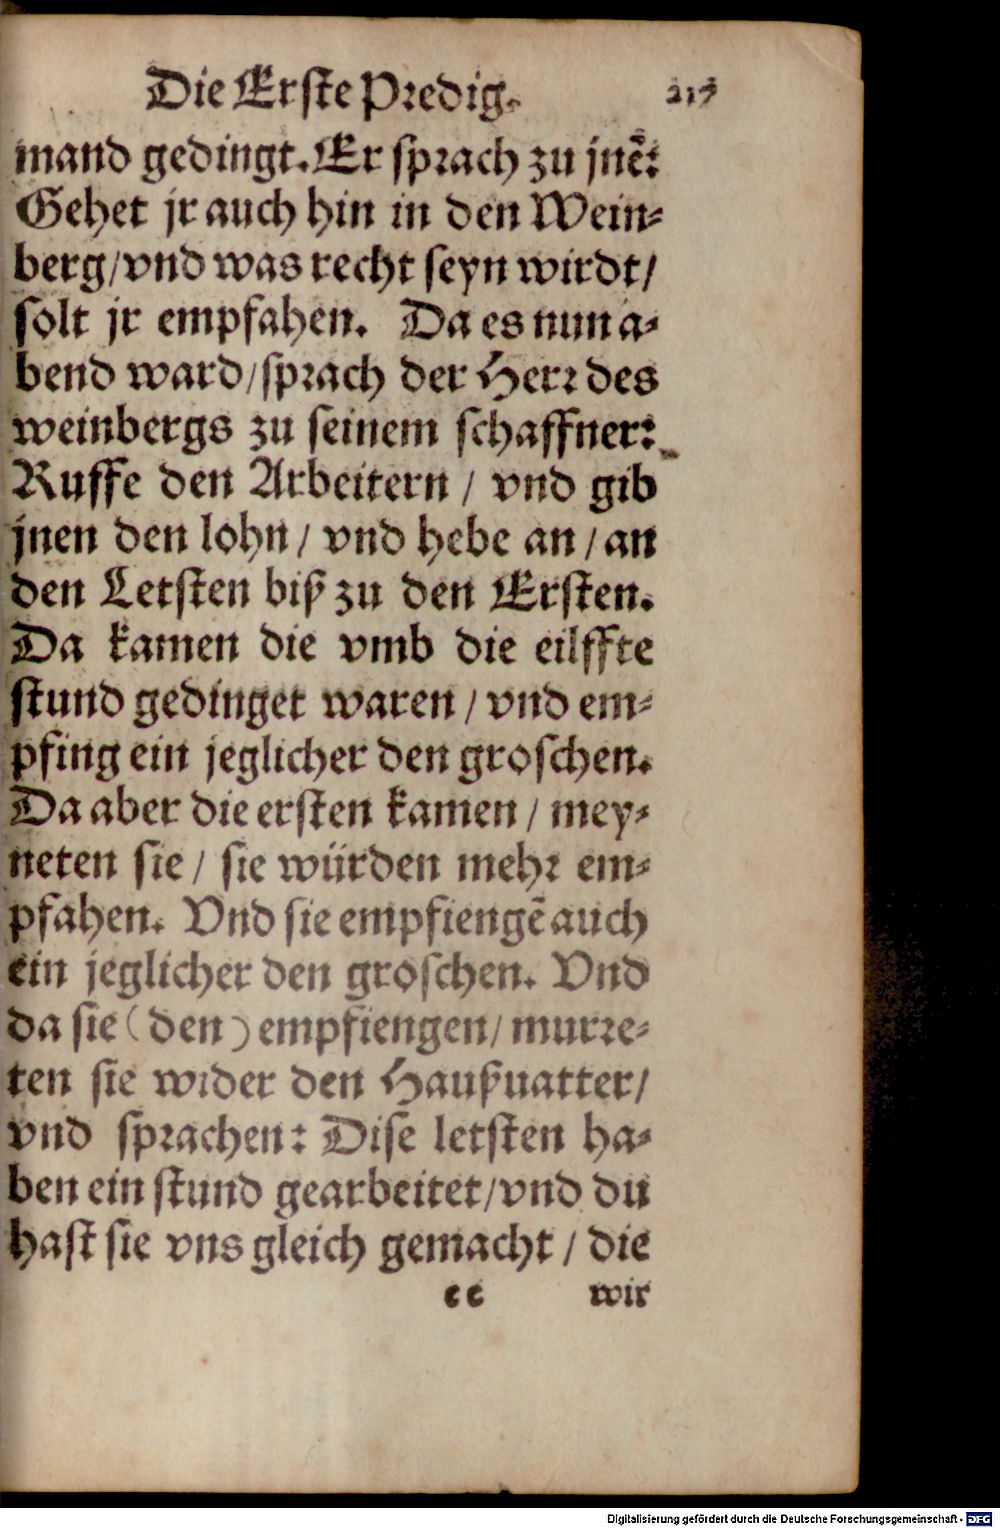 Die Erste Predig.
mand gedingt. Er sprach zu jnē:
Gehet jr auch hin in den Wein⸗
berg/vnd was recht seyn wirdt/
solt jr empfahen. Da es nun a⸗
bend ward/sprach der Herr des
weinbergs zu seinem schaffner:
Ruffe den Arbeitern / vnd gib
jnen den lohn / vnd hebe an / an
den Letsten biß zu den Ersten.
Da kamen die vmb die eilffte
stund gedinget waren / vnd em⸗
pfing ein jeglicher den groschen.
Da aber die ersten kamen / mey⸗
neten sie / sie würden mehr em⸗
pfahen. Vnd sie empfiengē auch
ein jeglicher den groschen. Vnd
da sie (den) empfiengen/ murre⸗
ten sie wider den Haußuatter/
vnd sprachen: Dise letsten ha⸗
ben ein stund gearbeitet/vnd du
hast sie vns gleich gemacht / die
ee wir
Digitalisierung gefördert durch die Deutsche Forschungsgemeinschaft - DFG